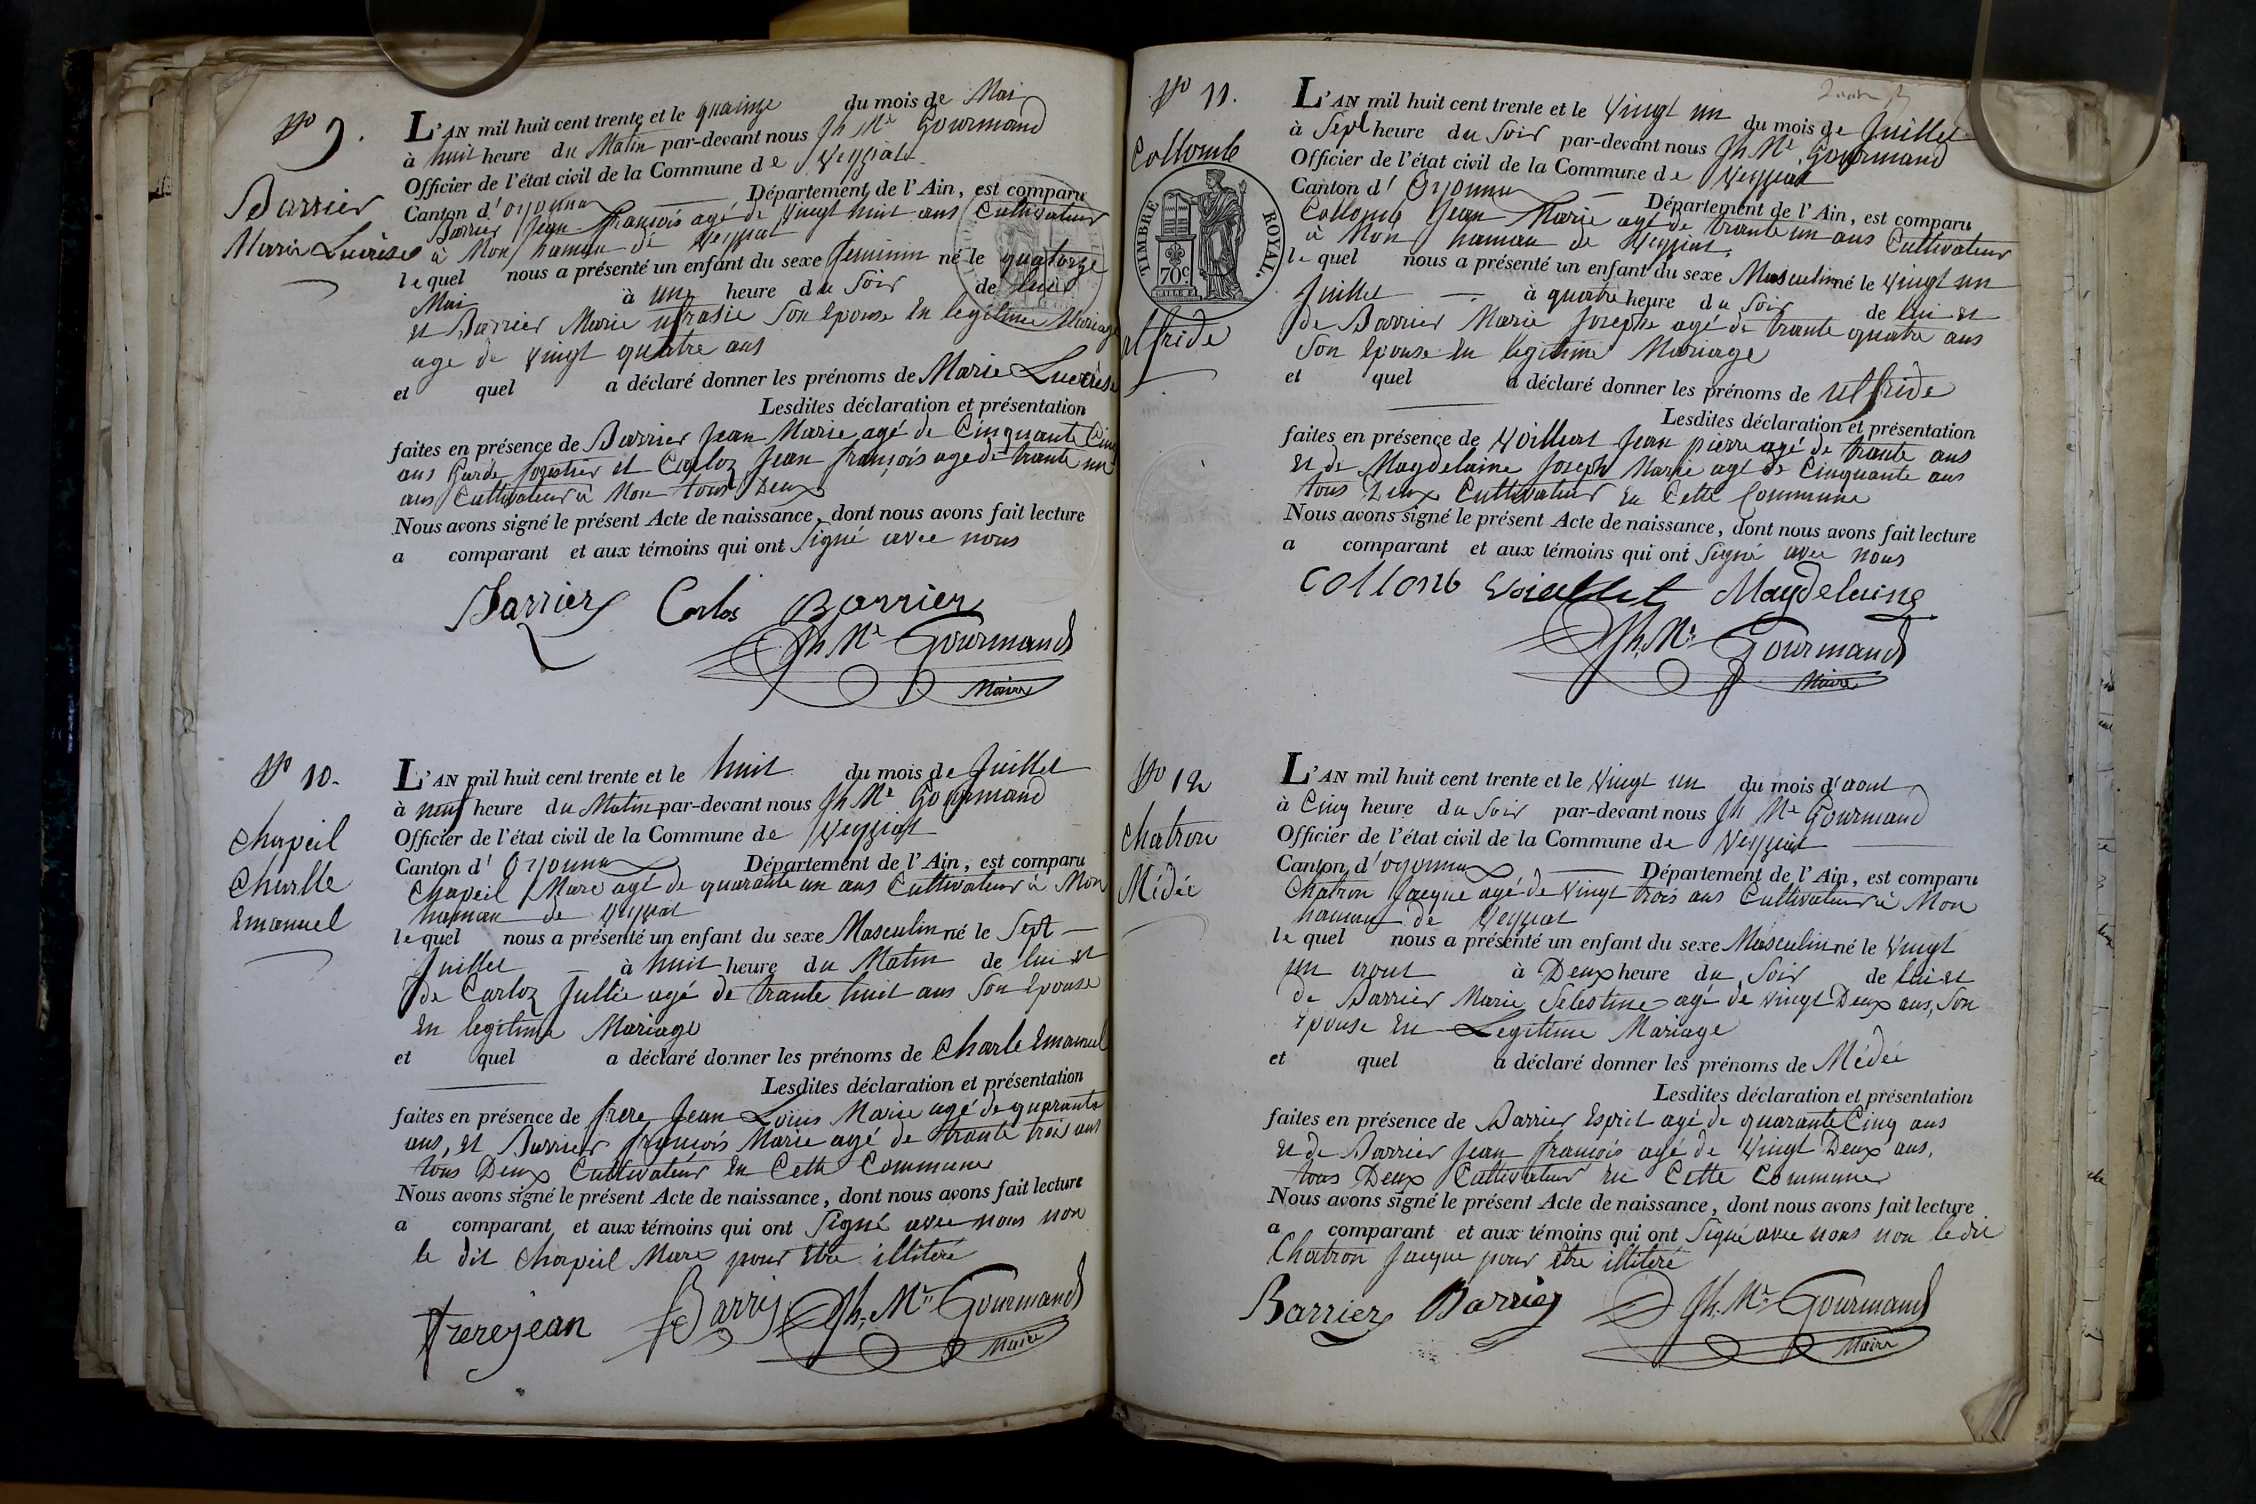 No 9.
Barrier
Marie Lucrèse
L'AN mil huit cent trente et le quainze du mois de Mai
à huit heure du Matin par-devant nous Jh Me Gourmand
Officier de l'état civil de la Commune de Veyziat
Canton d'oyonnax Département de l'Ain, est comparu
Barrier Jean François agé de vingt huit ans Cultivateur
à Mon hamau de Veyziat
lequel nous a présenté un enfant du sexe feminin né le quatorze
Mai à une heure du Soir de lui
et Barrier Marie ufrasie Son Epouse En legitime Mariage
age de vingt quatre ans
et quel a déclaré donner les prénoms de Marie Lucrèse
Lesdites déclaration et présentation
faites en présence de Barrier Jean Marie agé de Cinquante Cinq
ans Garde forestier et Carloz Jean françois age de trante un
ans Cultivateur à Mon tous Deux
Nous avons signé le présent Acte de naissance, dont nous avons fait lecture
a comparant et aux témoins qui ont Signé avec nous
Barrier Carlos Barrier
Jh Me Gourmand
Maire
No 10.
Chapeil
Charlle
Emanuel
L'AN mil huit cent trente et le huit du mois de Juillet
à neuf heure du Matin par-devant nous Jh Me Gourmand
Officier de l'état civil de la Commune de Veyziat
Canton d'Oyonnax Département de l'Ain, est comparu
Chapeil Marc agé de quarante un ans Cultivateur à Mon
hamau de Veyziat
lequel nous a présenté un enfant du sexe Masculin né le Sept
Juillet à huit heure du Matin de lui et
de Carloz Jullie agé de trante huit ans Son Epouse
En legitime Mariage
et quel a déclaré donner les prénoms de Charle Emanuel
Lesdites déclaration et présentation
faites en présence de frere Jean Louis Marie agé de quarante
ans, et Barrier françois Marie agé de trante trois ans
tous Deux Cultivateur En Cette Commune
Nous avons signé le présent Acte de naissance, dont nous avons fait lecture
a comparant et aux témoins qui ont Signé avec nous non
le dit Chapeil Marc pour Etre illiteré
frerejean Barrier Jh. Me Gourmand
Maire
No 11.
Collomb
TIMBRE ROYAL.
70c
ulfride
L'AN mil huit cent trente et le vingt un du mois de Juillet
à Sept heure du Soir par-devant nous Jh Me Gourmand
Officier de l'état civil de la Commune de Veyziat
Canton d'Oyonnax Département de l'Ain, est comparu
Collomb Jean Marie agé de trante un ans Cultivateur
à Mon hamau de Veyziat,
lequel nous a présenté un enfant du sexe Masculin né le vingt un
Juillet à quatre heure du Soir de lui et
de Barrier Marie Josephe agé de trante quatre ans
Son Epouse En legitime Mariage
et quel a déclaré donner les prénoms de ulfride
Lesdites déclaration et présentation
faites en présence de Voillat Jean pierre agé de trante ans
et de Magdelaine Joseph Marie agé de Cinquante ans
tous Deux Cultivateur En Cette Commune
Nous avons signé le présent Acte de naissance, dont nous avons fait lecture
a comparant et aux témoins qui ont Signé avec nous
Collonb Magdelaine
Jh. Me Gourmand
Maire
No 12
Chatron
Médée
L'AN mil huit cent trente et le vingt un du mois d'aout
à Cinq heure du Soir par-devant nous Jh Me Gourmand
Officier de l'état civil de la Commune de Veyziat
Canton d'oyonnax Département de l'Ain, est comparu
Chatron Jacque agé de vingt trois ans Cultivateur à Mon
hamau de Veyziat
lequel nous a présenté un enfant du sexe Masculin né le vingt
un aout à Deux heure du Soir de lui et
de Barrier Marie Selestine agé de vingt Deux ans, Son
Epouse En Legitime Mariage
et quel a déclaré donner les prénoms de Médée
Lesdites déclaration et présentation
faites en présence de Barrier Esprit agé de quarante Cinq ans
et de Barrier Jean françois agé de Vingt Deux ans,
tous Deux Cultivateur En Cette Commune
Nous avons signé le présent Acte de naissance, dont nous avons fait lecture
a comparant et aux témoins qui ont Signé avec nous non le dit
Chatron Jacque pour Etre illiteré
Barrier Barrier Jh. Me Gourmand
Maire